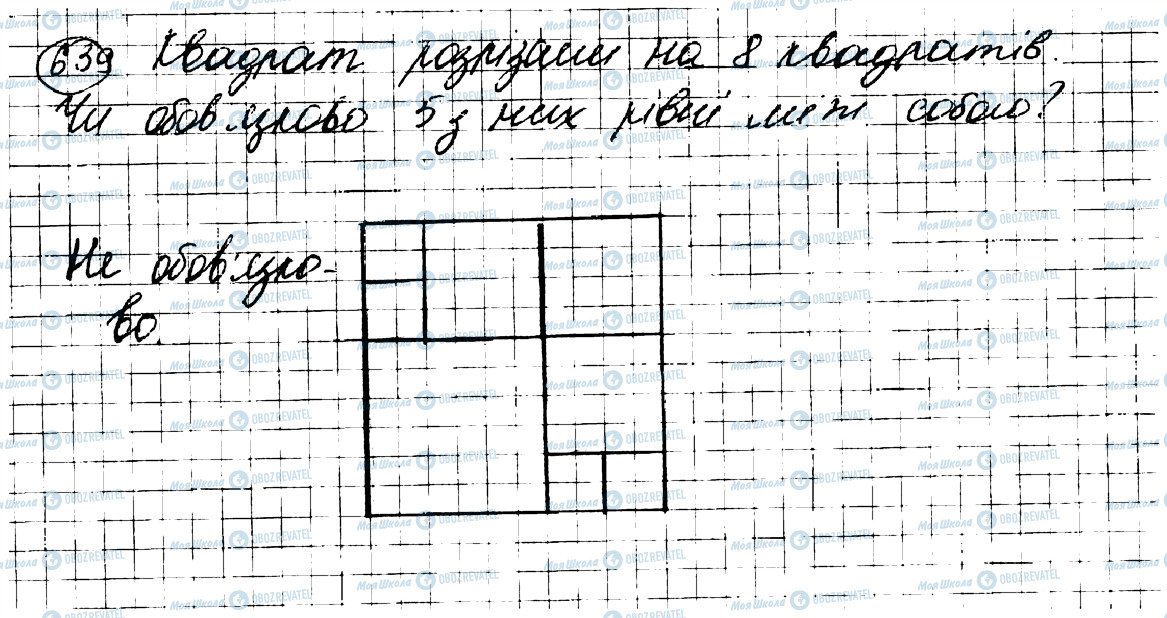 639 Квадрат розрізали на 8 квадратів.
Чи обов'язково 5 з них рівні між собою?
Не обов'язко-
во.
МояШкола OBOZREVATEL